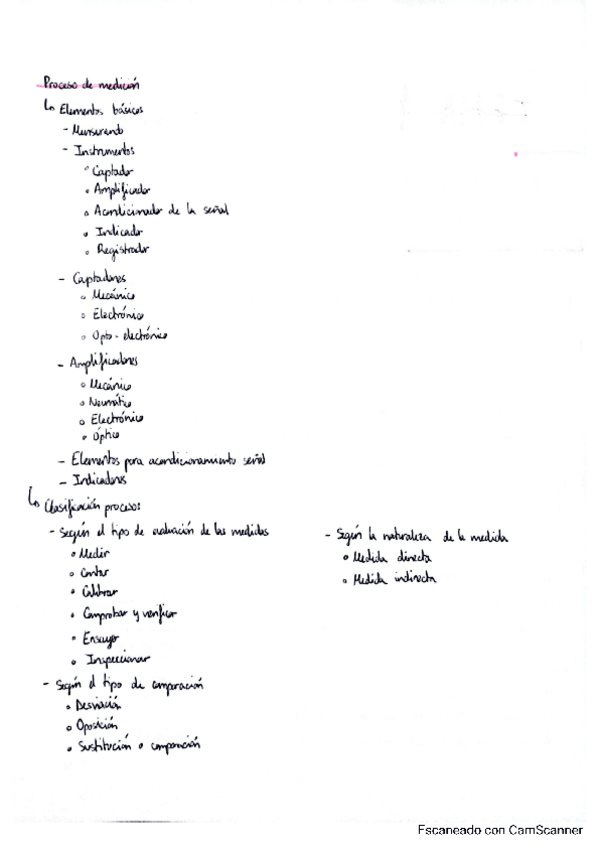 Proceso de medición
↳ Elementos básicos
- Mensurando
- Instrumentos
◦ Captador
◦ Amplificador
◦ Acondicionador de la señal
◦ Indicador
◦ Registrador
- Captadores
◦ Mecánico
◦ Electrónico
◦ Opto-electrónico
- Amplificadores
◦ Mecánico
◦ Neumático
◦ Electrónico
◦ Óptico
- Elementos para acondicionamiento señal
- Indicadores
↳ Clasificación proceso:
- Según el tipo de evaluación de las medidas
◦ Medir
◦ Contar
◦ Calibrar
◦ Comprobar y verificar
◦ Ensayar
◦ Inspeccionar
- Según el tipo de comparación
◦ Desviación
◦ Oposición
◦ Sustitución o comparación
- Según la naturaleza de la medida
◦ Medida directa
◦ Medida indirecta
Escaneado con CamScanner